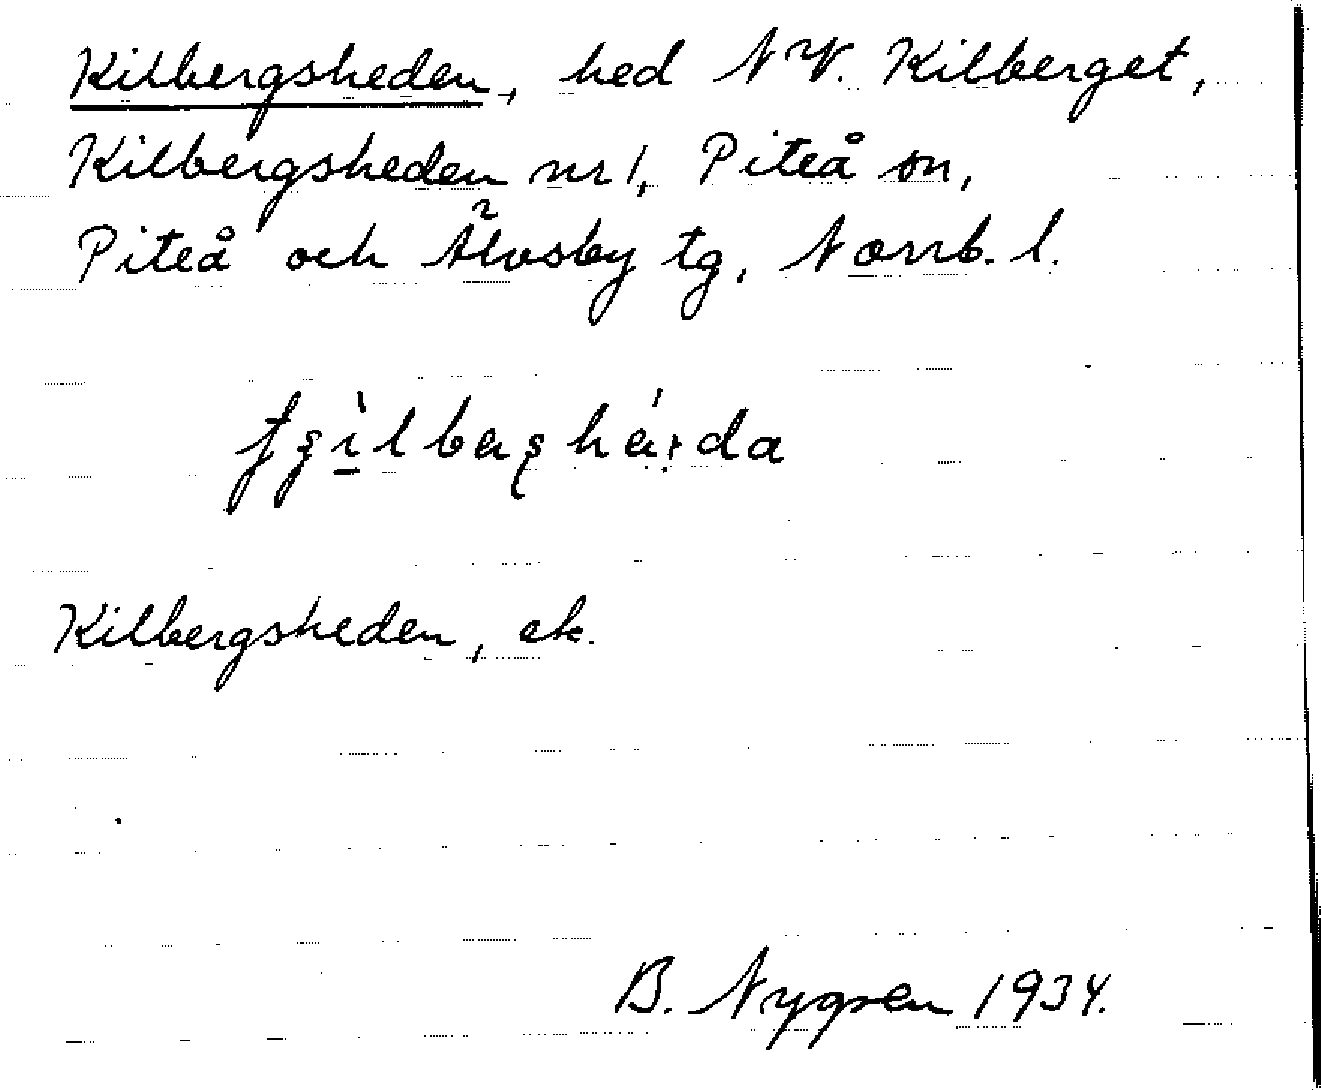 Kilbergsheden, hed NV. Kilberget,
Kilbergsheden nr 1, Piteå sn,
Piteå och Älvsby tg, Norrb. l.
Kilbergsheden, ek.
B. Nygren 1934.